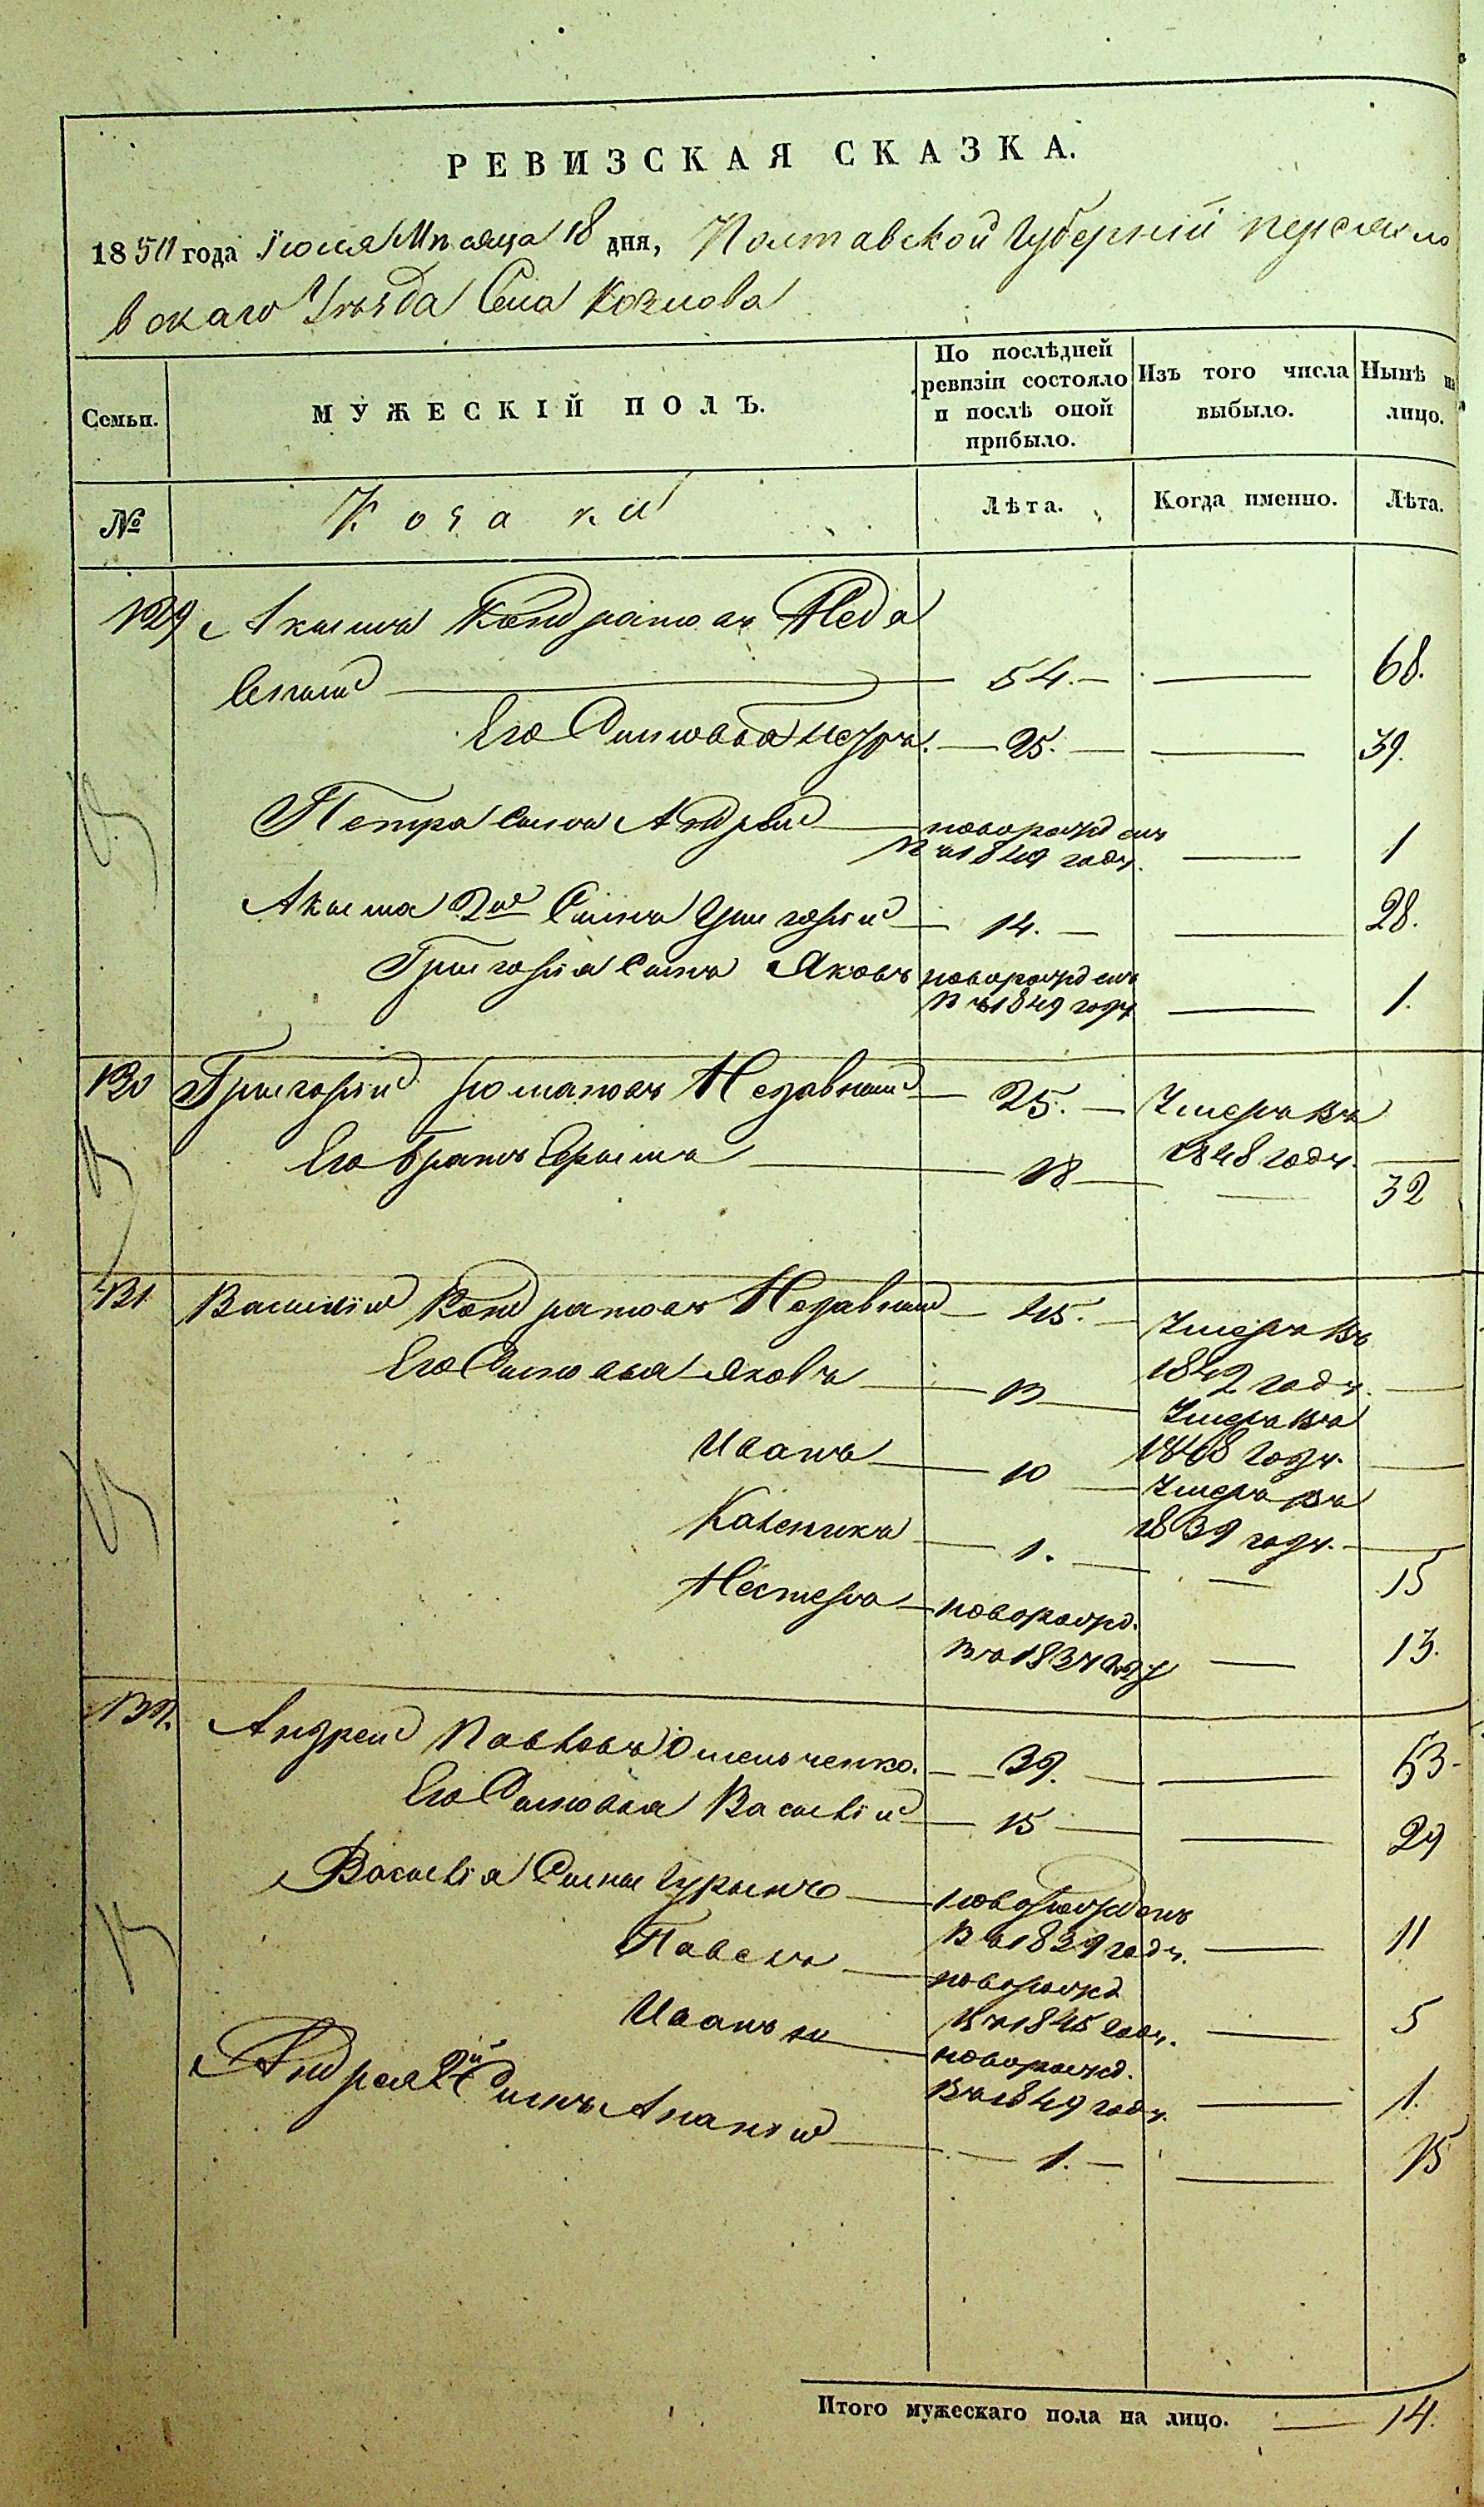 РЕВИЗСКАЯ СКАЗКА.
1850 года Іюля Мѣсяца 18 дня, Полтавской Губерніи переясло
вскаго Уѣзда Села Козлова
Семьи.
МУЖЕСКІЙ ПОЛЪ.
По послѣдней ревизіи состояло и послѣ оной прибыло.
Изъ того числа выбыло.
Нынѣ на лицо.
№
Козаки
Лѣта.
Когда именно.
Лѣта.
129 Акимъ Кондратовъ Неда
вній 54. 68.
Его Сыновья Петръ. 25. 39.
Петра сынъ Андрей новорожденъ
въ 1849 году. 1
Акима 2й Сынъ Григорій 14. 28.
Григорія сынъ Яковъ новорожденъ
въ 1849 году 1.
130 Григорій Романовъ Недавній 25. Умеръ въ
1848 году.
Его братъ Ефимъ 18 32
131 Василій Кондратовъ Недавній 45. Умеръ въ
1842 году.
Его Сыновья Яковъ 13 Умеръ въ
1848 году.
Иванъ 10 Умеръ въ
1839 году.
Каленикъ 1. 15
Нестеръ новорожд.
въ 1837 году 13.
132. Андрей Павловъ Омельченко. 39. 53.
Его Сыновья Василій 15 29
Василія Сыны Гурынъ новорожденъ
въ 1839 году. 11
Павелъ новорожд
въ 1845 году. 5
Иванъ новорожд.
въ 1849 году. 1.
Андрея 2й Сынъ Ананій 1. 15
Итого мужескаго пола на лицо. 14.